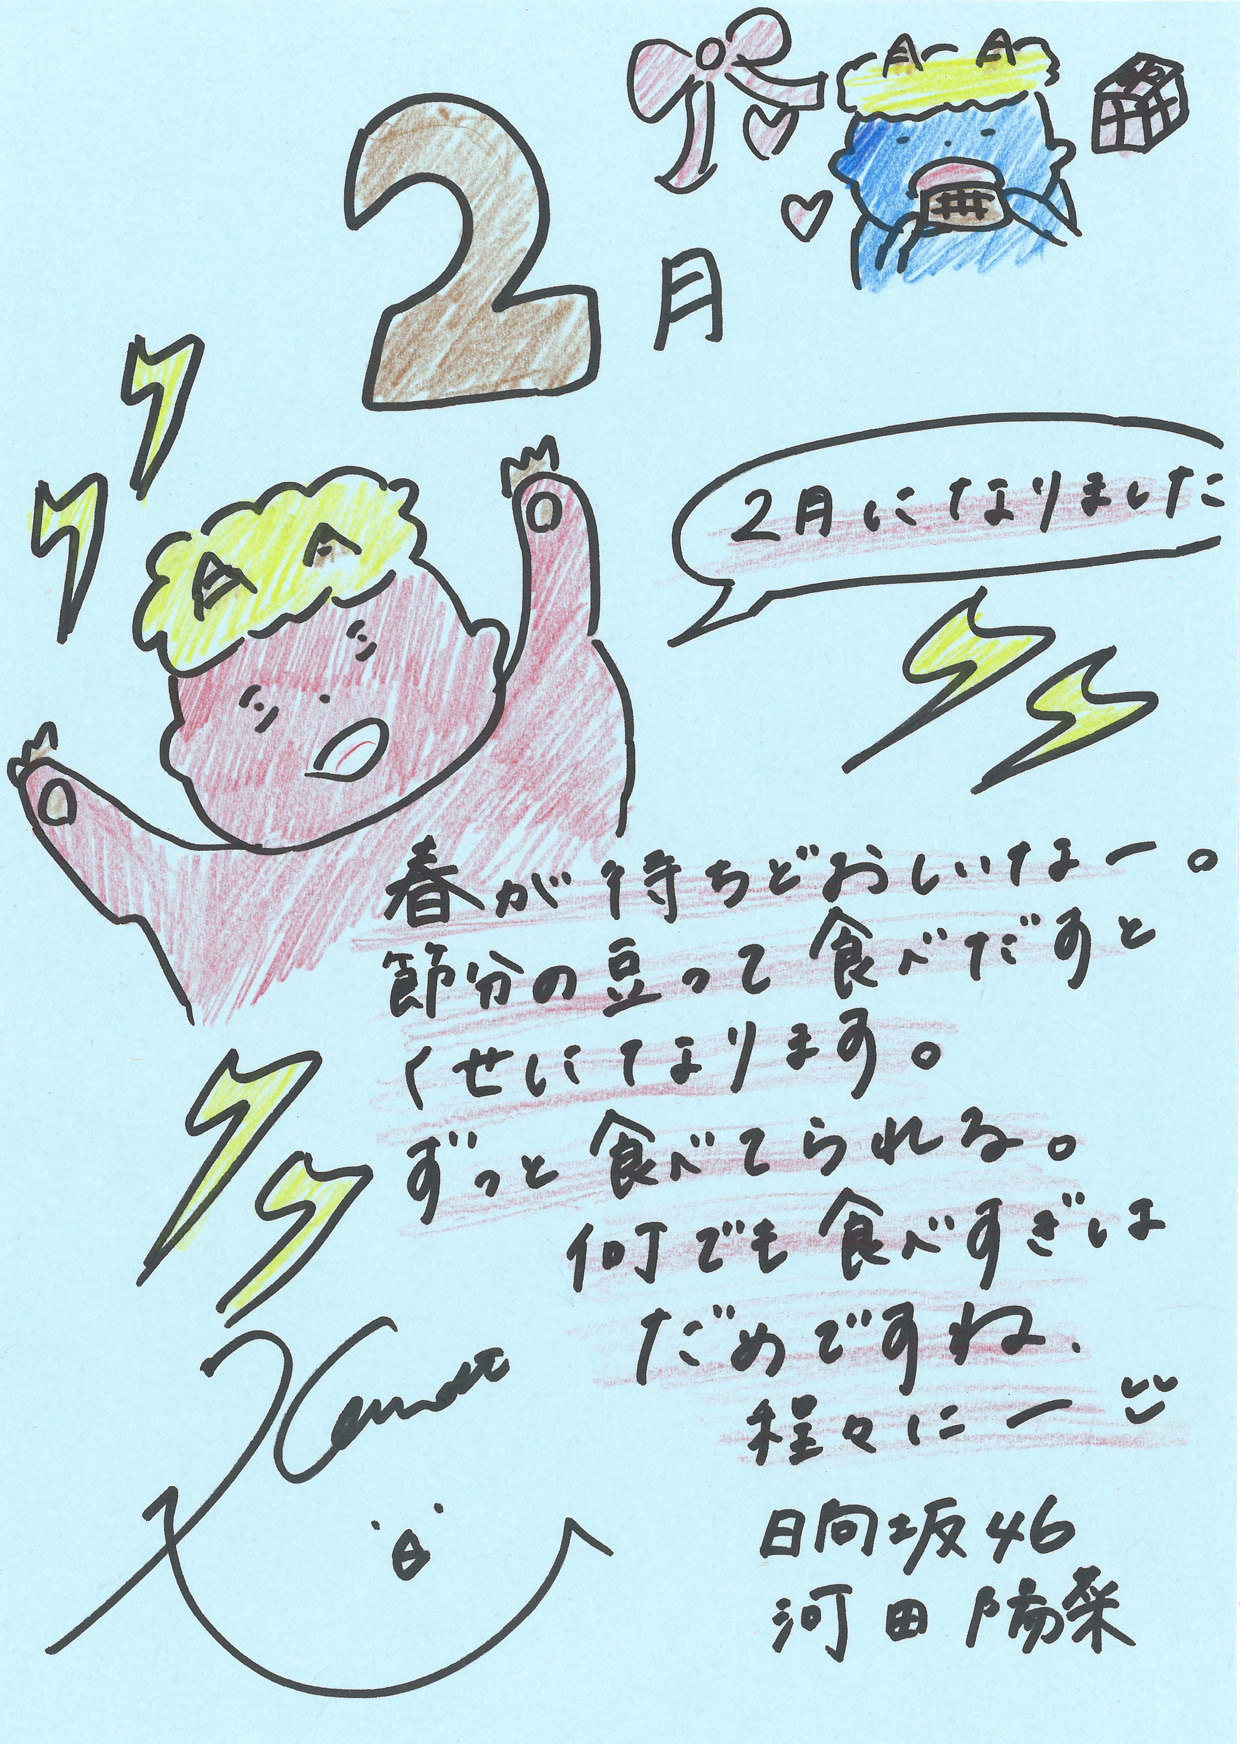 2月
2月になりました
春が待ちどおしいなー。
節分の豆って食べだすと
くせになります。
ずっと食べてられる。
何でも食べすぎは
だめですね、
程々にー
日向坂46
河田陽菜